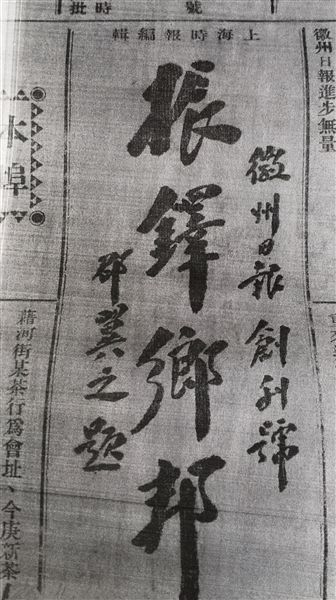 號 時批
徽州日報進步無量
上海時報編輯
徽州日報創刊號
振鐸鄉邦
邵翼之題
本埠
藉河街某茶行爲會址、今庚新茶